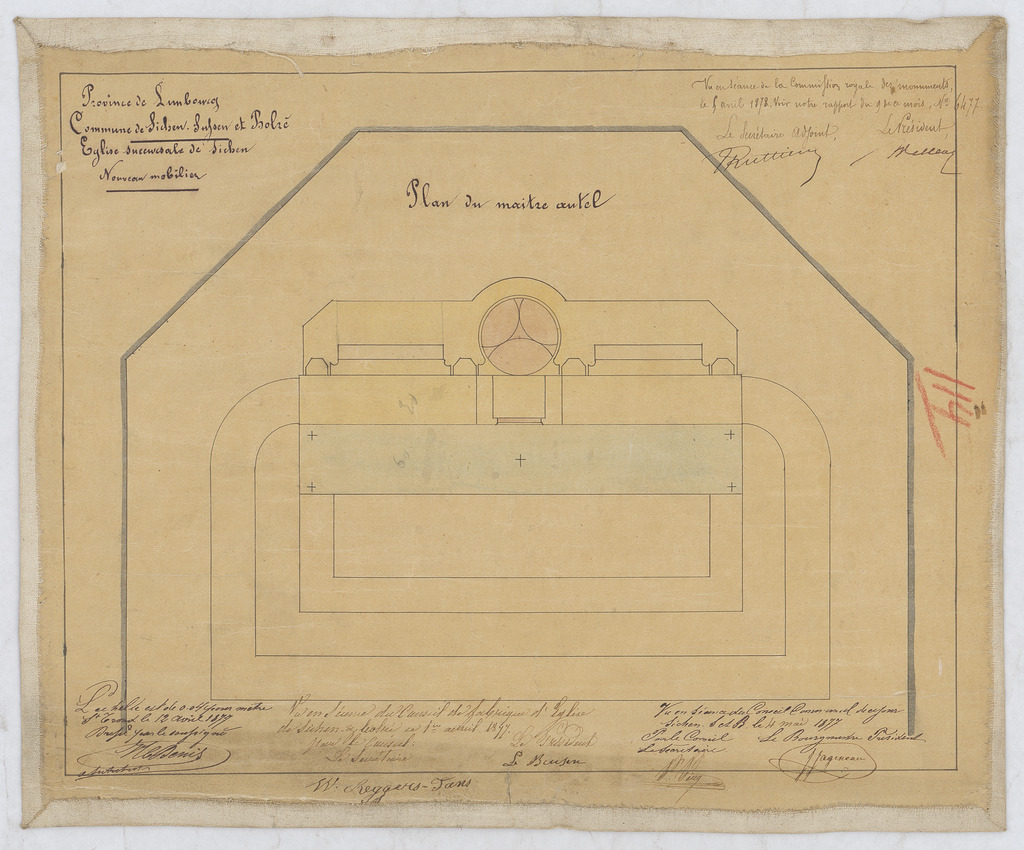 Province de Limbourg
Commune de Sichen-Sussen et Bolré
Eglise succursale de Sichen
Nouveau mobilier
Vu en séance de la Commission royale des monuments,
le 5 avril 1878. Voir notre rapport du 9 de ce mois, No 6477
Le Secrétaire adjoint Le Président,
Plan du maitre autel
114
L'echelle est de 0.04 pour metre
St Trond le 12 avril 1877
Dressé par le soussigné
H C Denis
Vu en séance du Conseil de fabrique d'Eglise
de Sichen
Pour le Conseil
Le Secrétaire Le Président
W. Reggers-Tans
Vu en séance du Conseil Communal de
Sichen. S et B. le 4 mai 1877
Par le Conseil Le Bourgmestre Président
Le Secrétaire